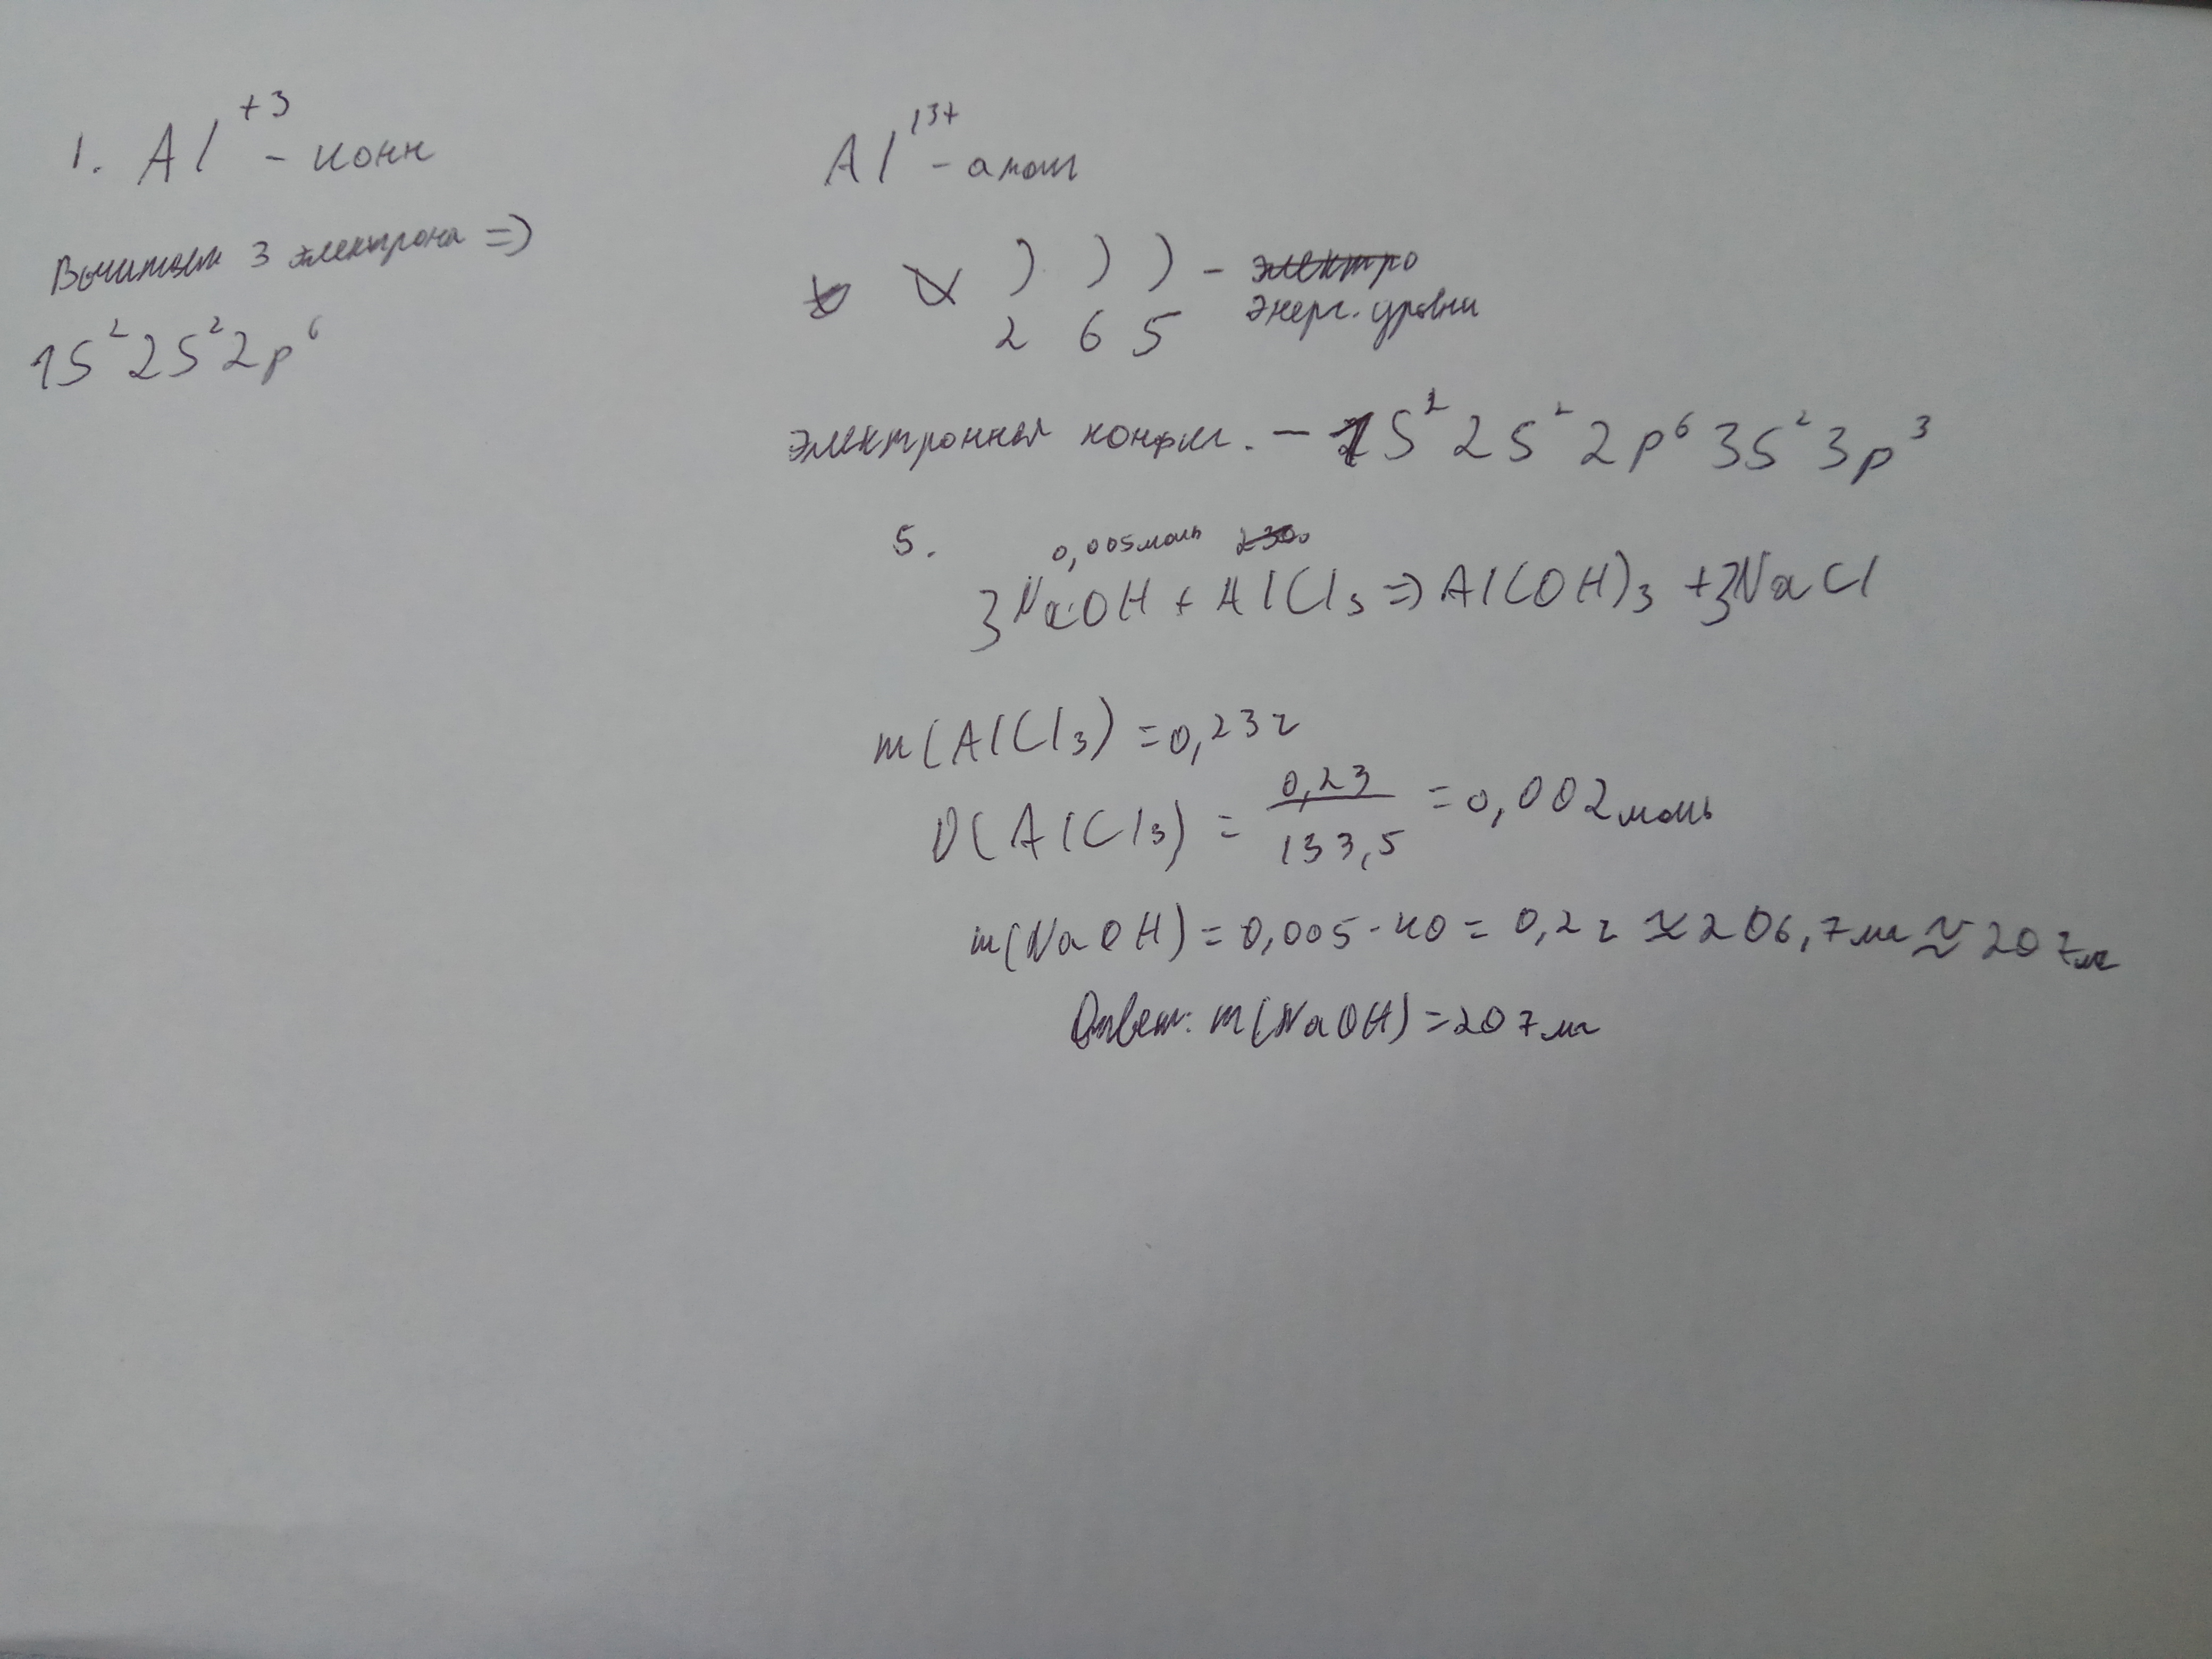 1. Al⁺³ - ионн
Вычитаем 3 электрона =>
1S² 2S² 2p⁶
Al¹³⁺ - атом
) ) ) - электро
2 6 5 энерг. уровни
электронная конфиг. - 1S² 2S² 2p⁶ 3S² 3p³
5.
0,005моль 230
3NaOH + AlCl₃ => Al(OH)₃ + 3NaCl
m(AlCl₃) = 0,23г
υ(AlCl₃) = 0,23 / 133,5 = 0,002моль
m(NaOH) = 0,005 · 40 = 0,2г ≈ 206,7мг ≈ 207мг
Ответ: m(NaOH) = 207мг